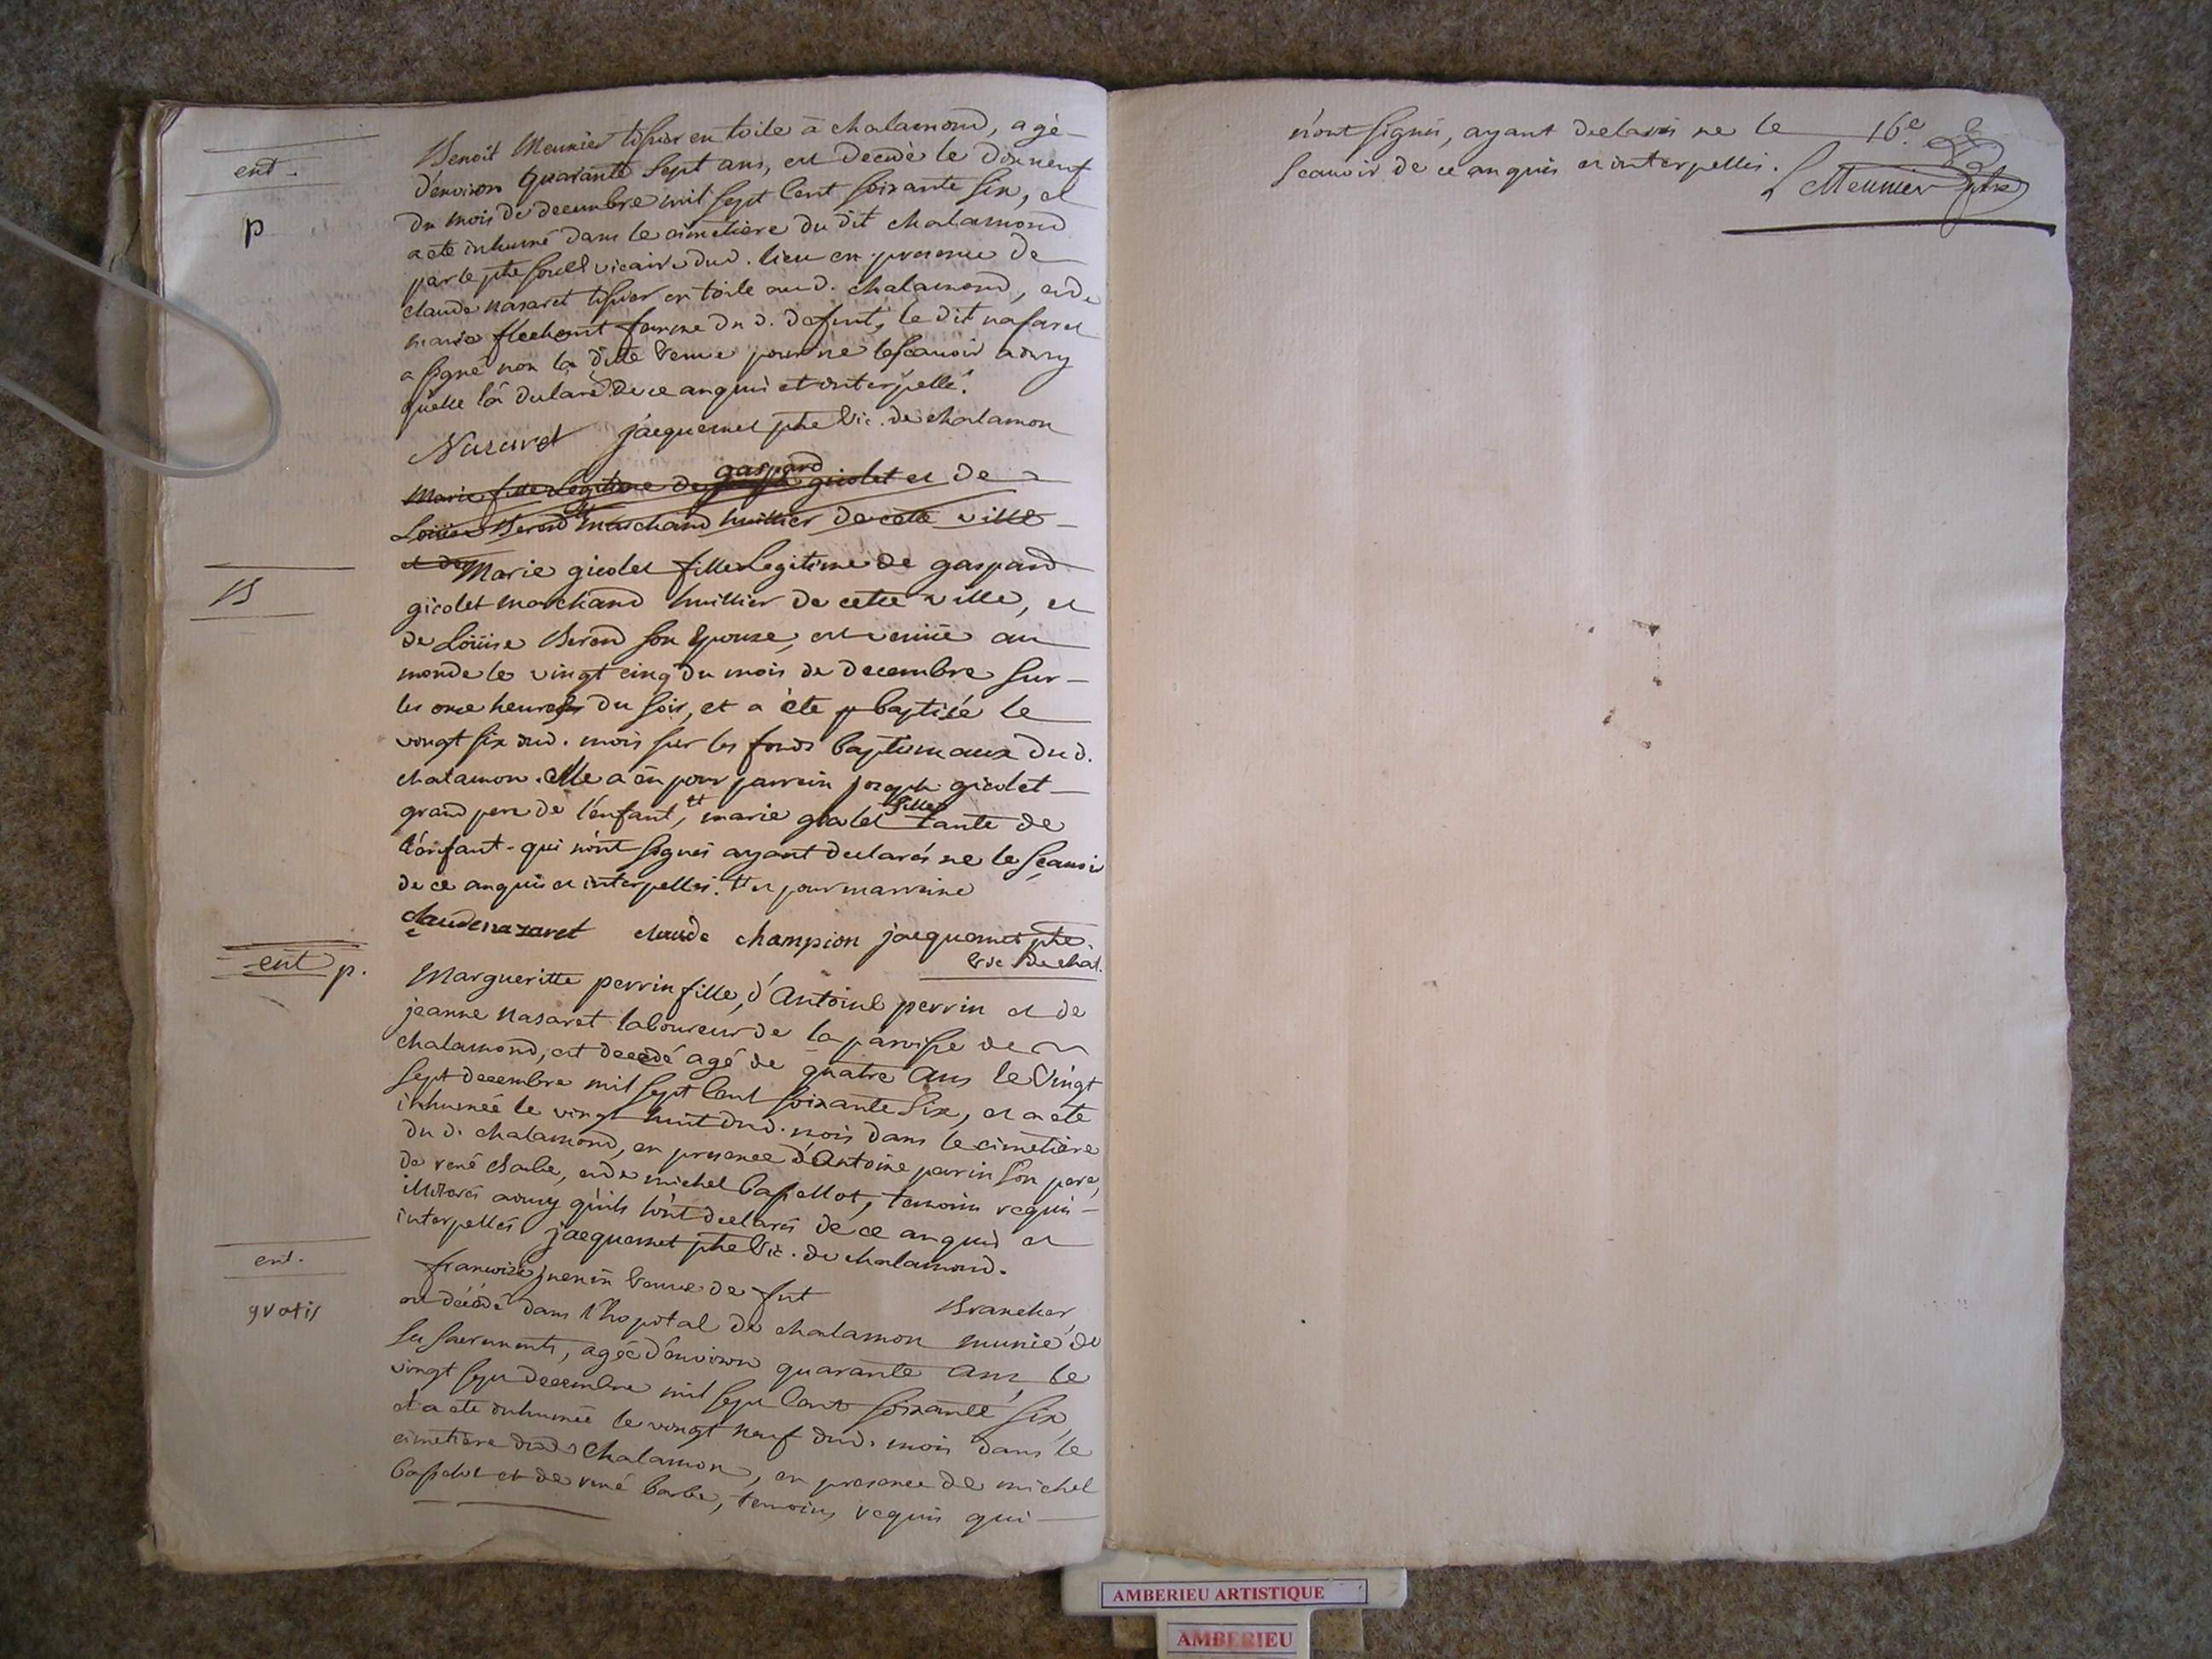 ent.
p
Benoit Meunier tissier en toile à chalamond, agé
d'environ quarante sept ans, est decedè le dixneuf
du mois de decembre mil sept cent soixante six, et
a eté inhumé dans le cimetiere du dit chalamond
par le ptre vicaire dud. lieu en presence de
claude nasaret tissier en toile aud. chalamond, et de
marie femme du d. defunt, le dit nasaret
a signé non la dite veuve pour ne le scavoir
quelle là declaré de ce enquis et interpellé.
Nazaret jacquemet ptre Vic. de chalamon
Marie fille legitime de gaspard gicolet et de
Loüise Berod marchand huillier de cette ville
et de
B
Marie gicolet fille Legitime de gaspard
gicolet marchand huillier de cette ville, et
de Loüise Berod son epouse, est venuë au
monde le vingt cinq du mois de decembre sur
les onze heures du soir, et a été baptisée le
vingt six dud. mois sur les fonds baptismaux dud.
chalamon. elle a eu pour parrein joseph gicolet
grand pere de l'enfant, tt marie gicolet fille tante de
l'enfant qui n'ont signés ayant declarés ne le scavoir
de ce enquis et interpellés. tt et pour marreine
claude nazaret claude champion jacquemet ptre
vic de chal.
ent p.
Margueritte perrin fille, d'Antoine perrin et de
jeanne nasaret laboureur de la paroisse de
chalamond, est decedé agé de quatre ans le vingt
sept decembre mil sept cent soixante six, et a eté
inhumée le vingt huit dud. mois dans le cimetière
du d. chalamond, en presence d'Antoine perin son pere,
de rené barbe, et de michel bassellot, temoins requis
illiterés qu'ils l'ont declarés de ce enquis et
interpellés jacquemet ptre Vic. de chalamond.
ent.
gratis
francoise veuve de fut Brancher,
est décédé dans l'hopital de chalamon munie de
ses sacrements, agée d'environ quarante ans, le
vingt sept decembre mil sept cent soixante six,
et a eté inhumée le vingt neuf dud. mois dans le
cimetière dud. Chalamon, en presence de michel
et de rené barbe, temoins requis qui
n'ont signés, ayant declarés ne le 16.e
scauoir de ce enquis et interpellés.
Meunier ptre
AMBERIEU ARTISTIQUE
AMBERIEU